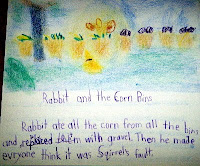 Rabbit and the Corn Bins
Rabbit ate all the corn from all the bins
and replaced them with gravel. Then he made
everyone think it was Sqirrel's fault.